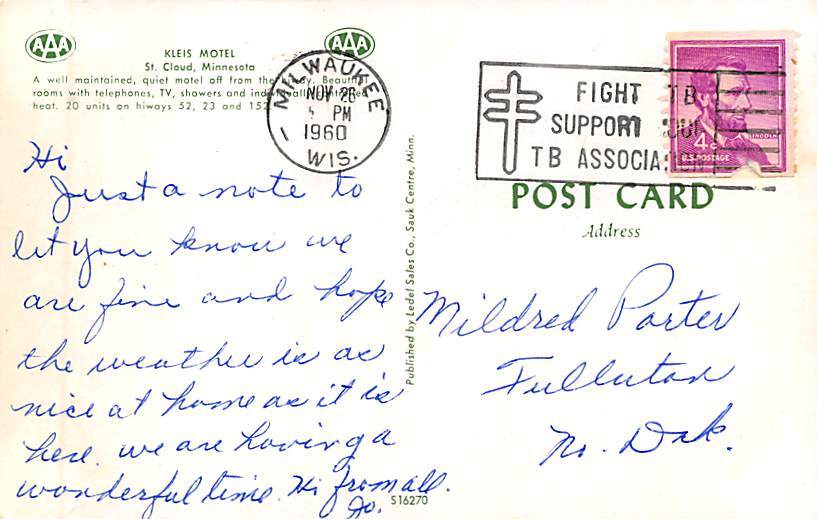 AAA
AAA
KLEIS MOTEL
St. Cloud, Minnesota
A well maintained, quiet motel off from the hiway. Beautiful
rooms with telephones, TV, showers and individually
heat. 20 units on hiways 52, 23 and 152
MILWAUKEE
NOV 26
PM
1960
WIS.
FIGHT TB
SUPPORT YOUR
TB ASSOCIATION
LINCOLN
4¢
U.S. POSTAGE
POST CARD
Address
Hi
Just a note to
let you know we
are fine and hope
the weather is as
nice at home as it is
here. we are having a
wonderful time. Hi from all.
Jo.
Published by Ledel Sales Co., Sauk Centre, Minn.
S16270
Mildred Porter
Fullerton
No. Dak.